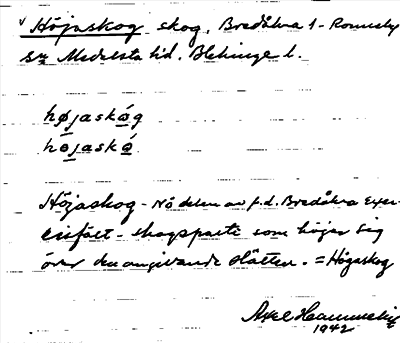 √ Höjaskog skog, Bredåkra 1 - Ronneby
sn Medelsta hd. Blekinge l.
högjaskåg
höjaskå
Höjaskog - Nö delen av f.d. Bredåkra Exer-
cisfält - skogsparti som höjer sig
över den omgivande slätten. = Högaskog
Axel
1942